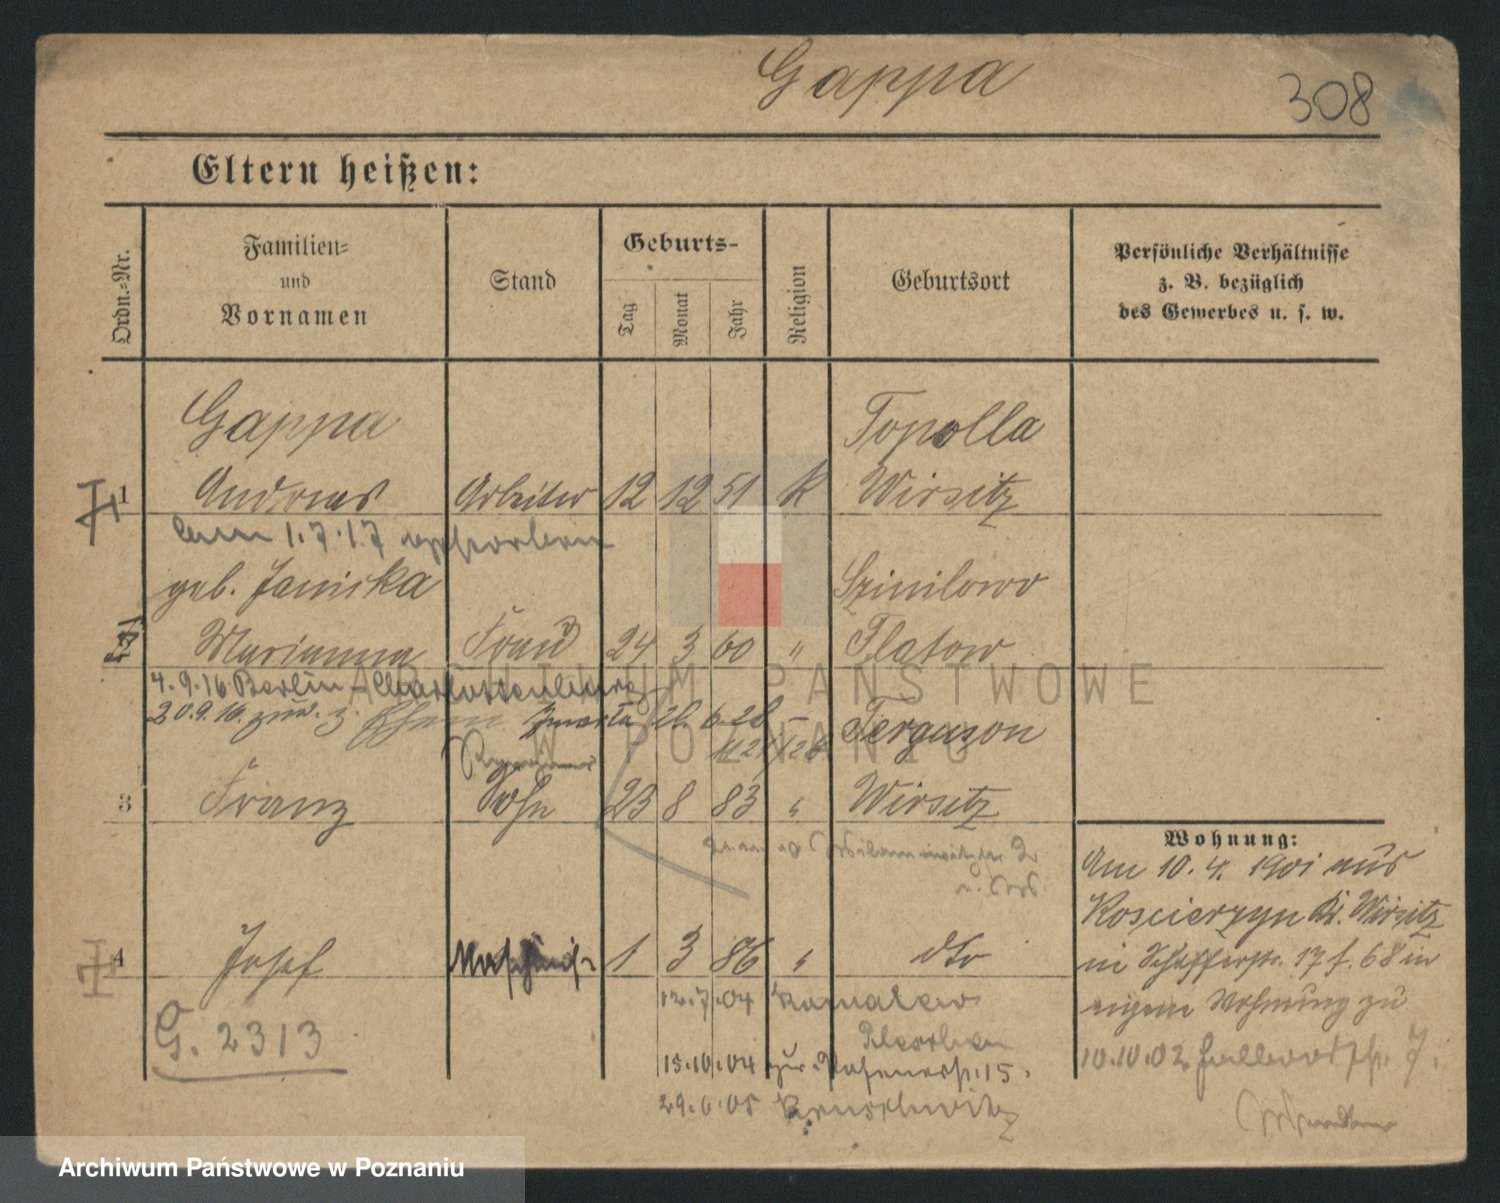 Gappa
308
Eltern heißen:
Ordn.-Nr.
Familien-
und
Vornamen
Stand
Geburts-
Tag
Monat
Jahr
Religion
Geburtsort
Persönliche Verhältnisse
z. B. bezüglich
des Gewerbes u. s. w.
Gappa Topolla
1 Andreas Arbeiter 12 12 51 k Wirsitz
am 1.7.17
geb. Janiska
2 Marianna Frau 24 3 60 " Flatow
4.9.16 Berlin-Charlottenburg
20.9.16. zur. z.
Ferguson
3 Franz Sohn 23 8 83 " Wirsitz
4 Josef 1 3 86 " dto
12.7.04
G. 2313
15.10.04 zur. 15.
29.6.05 Kruschwitz
Wohnung:
Am 10. 4. 1901 aus
Koscierzyn Kr. Wirsitz
in 17 f. 68 in
eigene Wohnung zu
10.10.02 7.
ARCHIWUM PAŃSTWOWE
W POZNANIU
Archiwum Państwowe w Poznaniu